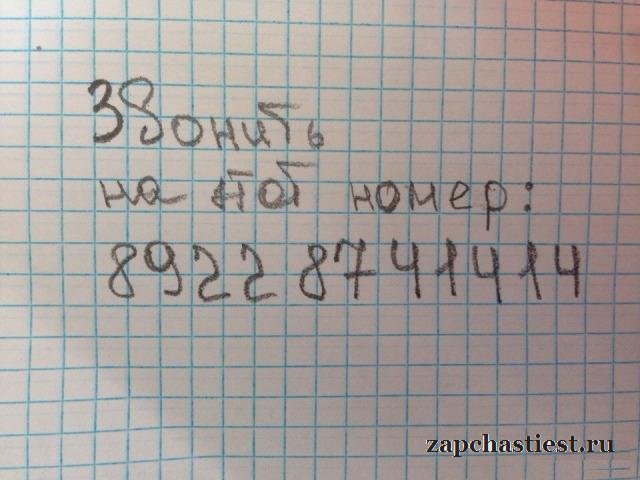 Звонить
на тот номер:
8922 8741414
zapchastiest.ru